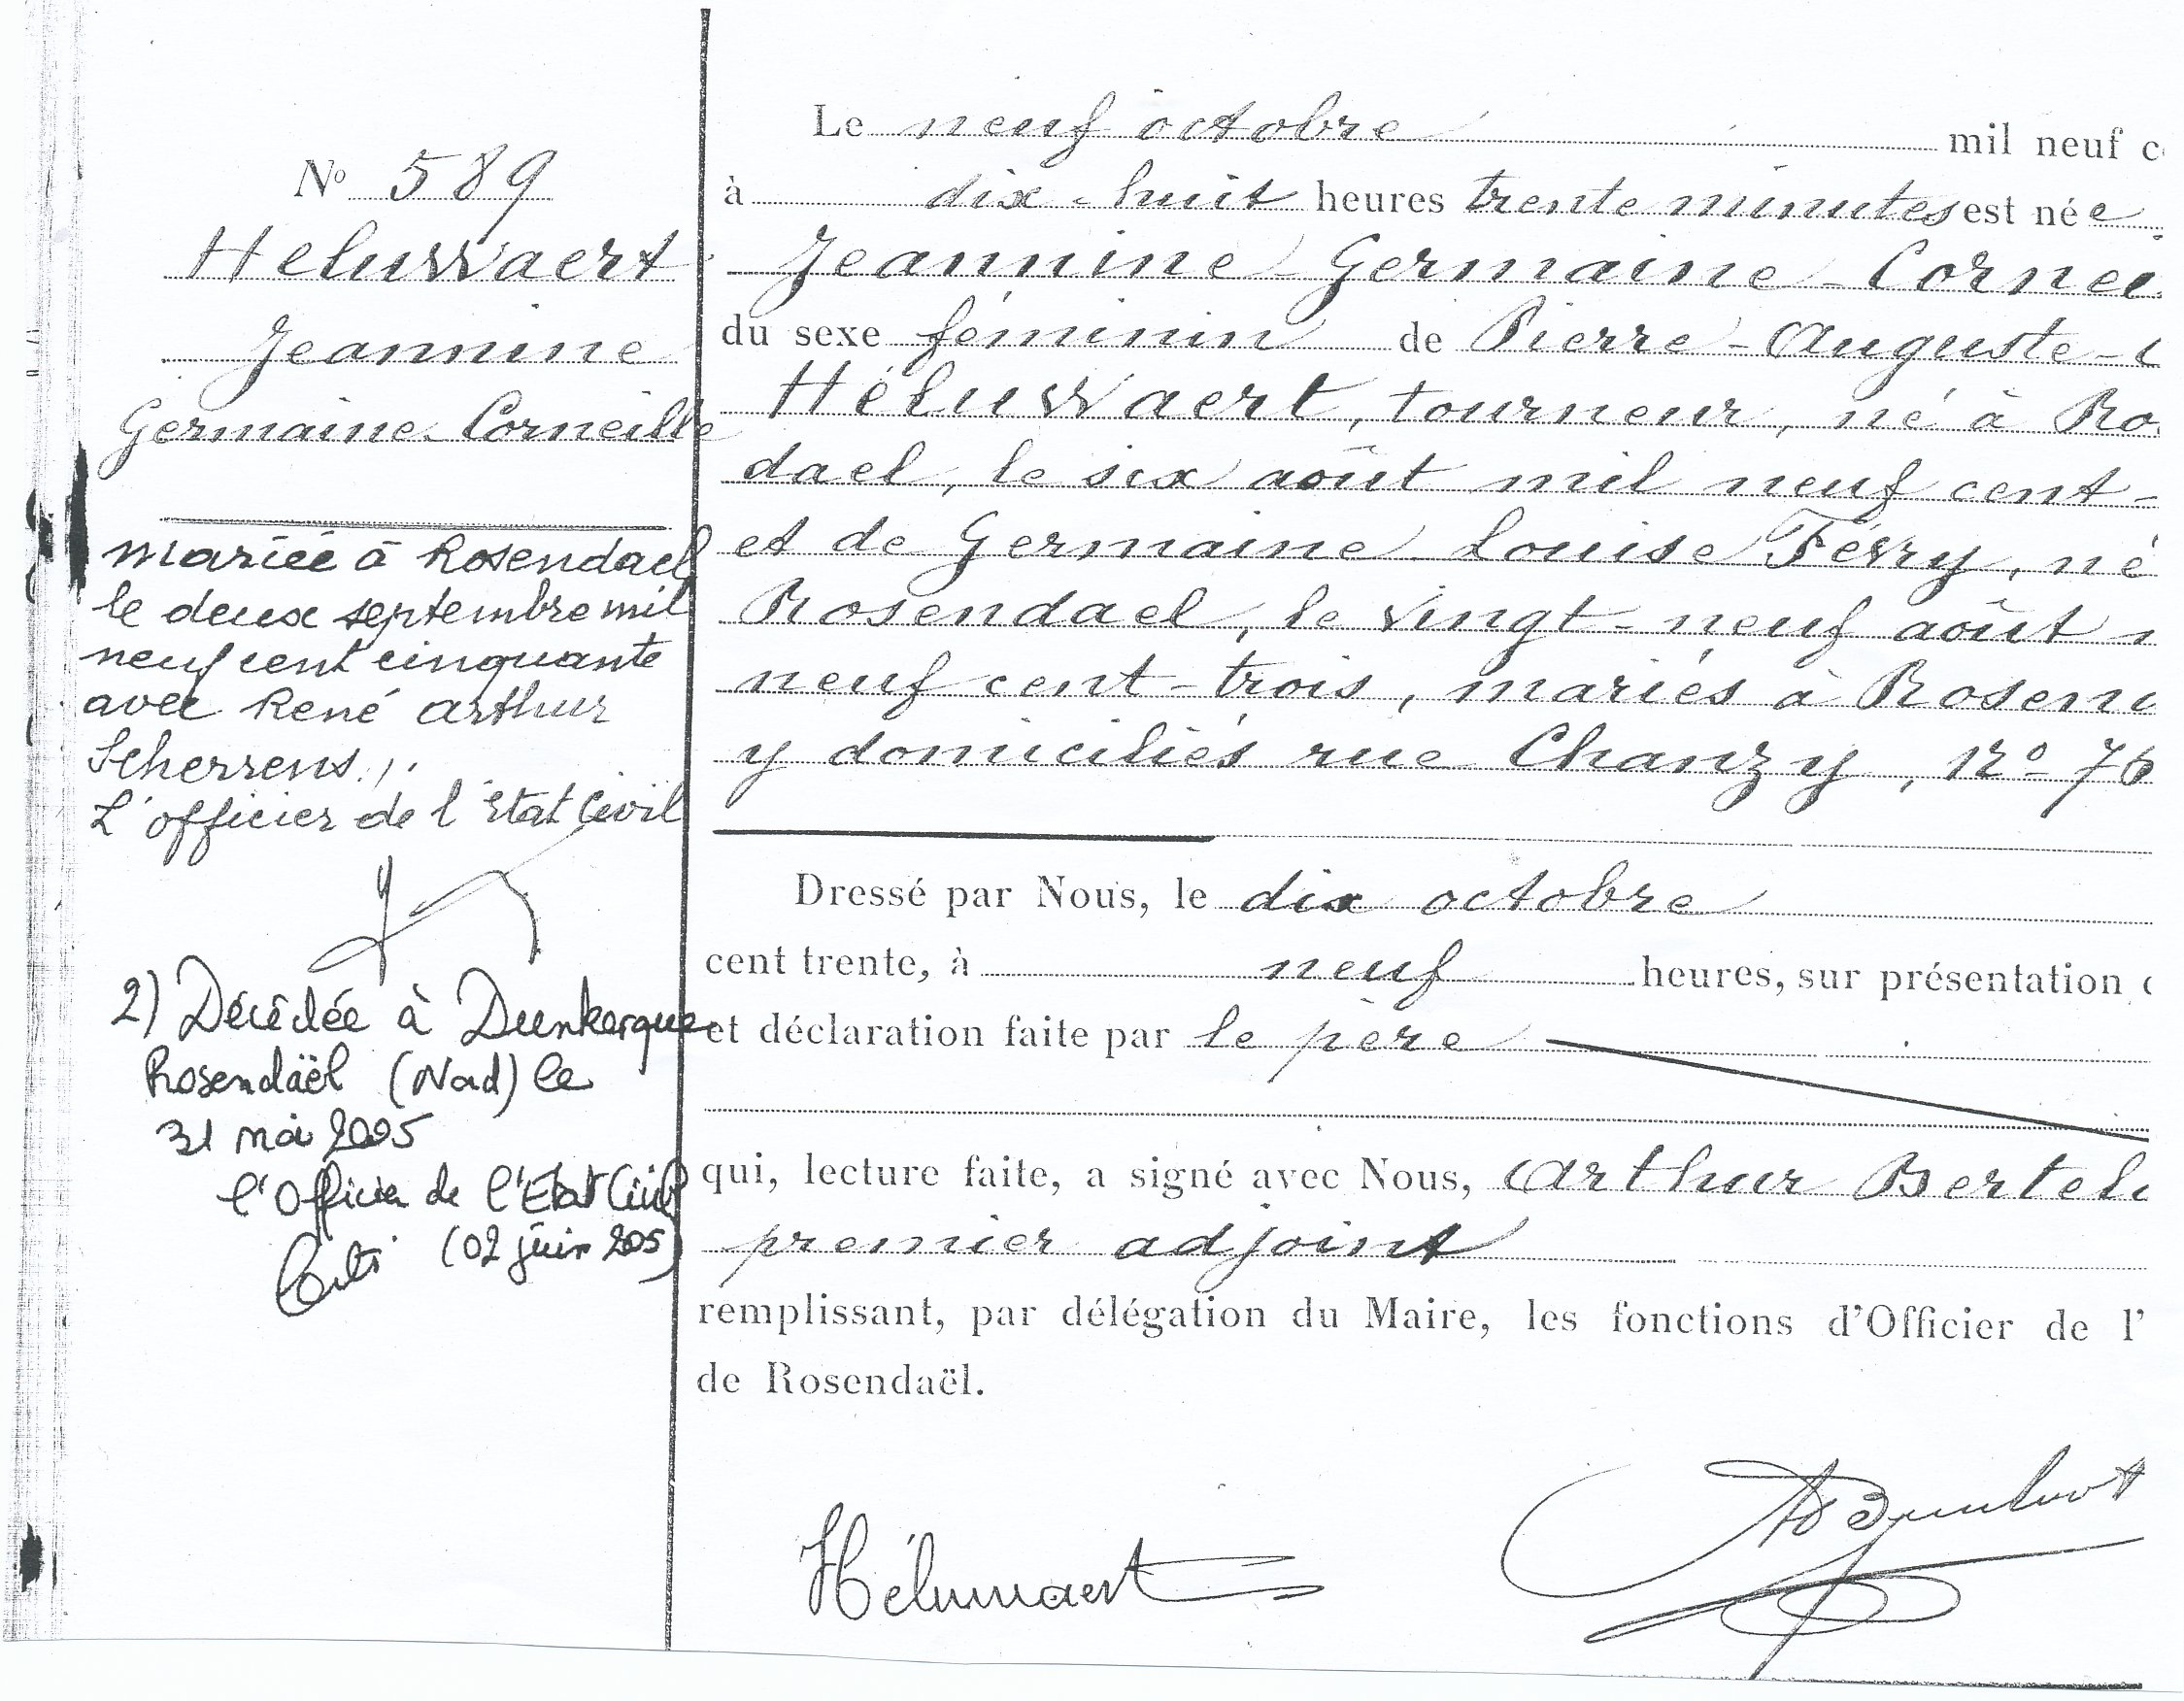 N° 589
Heluwaert
Jeannine
Germaine-Corneille
mariée à Rosendael
le deux septembre mil
neuf cent cinquante
avec René Arthur
Scherrens ./.
L'officier de l'Etat Civil
2) Décédée à Dunkerque
Rosendaël (Nord) le
31 mai 2005
l'Officier de l'Etat Civil
(02 juin 2005)
Le neuf octobre mil neuf c
à dix-huit heures trente minutes est née
Jeannine-Germaine-Cornei
du sexe féminin de Pierre-Auguste-
Héluwaert, tourneur, né à Ro
dael, le six août mil neuf cent-
et de Germaine Louise Féry, né
Rosendael, le vingt-neuf août
neuf cent-trois, mariés à Rosen
y domiciliés rue Chanzy, n° 76
Dressé par Nous, le dix octobre
cent trente, à neuf heures, sur présentation
et déclaration faite par le père
qui, lecture faite, a signé avec Nous, Arthur Bertel
premier adjoint
remplissant, par délégation du Maire, les fonctions d'Officier de l'
de Rosendaël.
Héluwaert